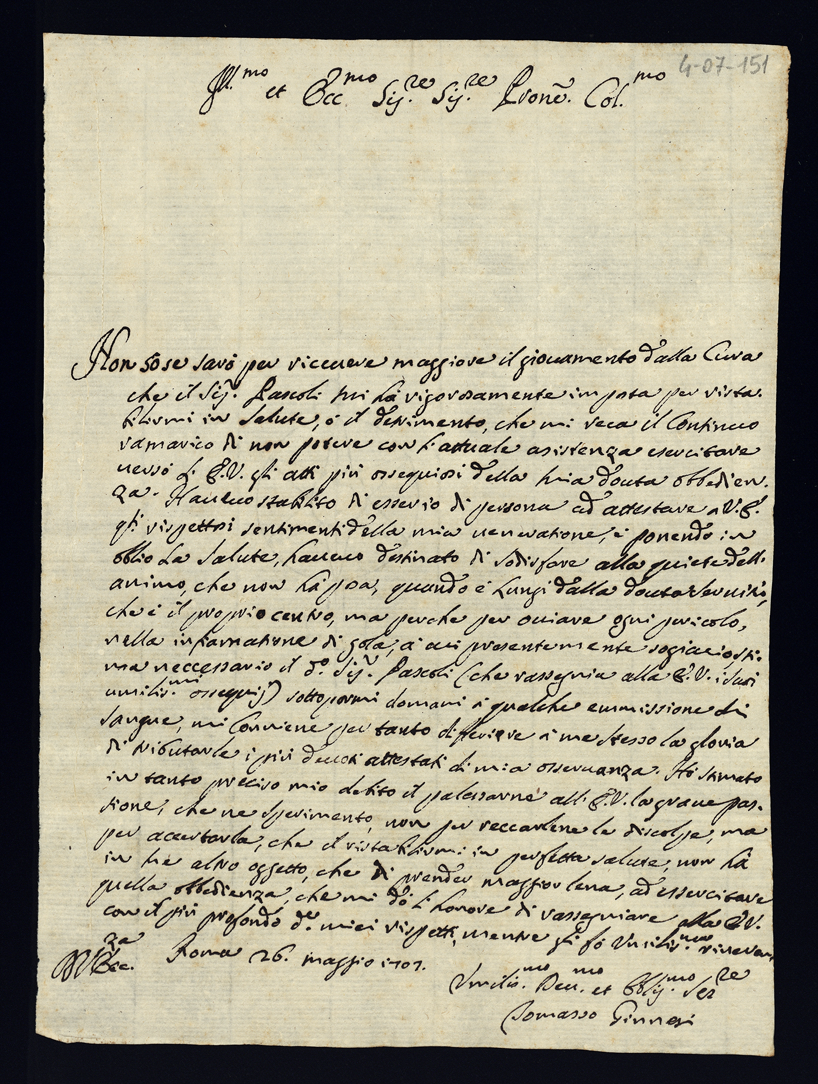 4-07-151
Ill.mo et Ecc.mo Sig.re Sig.re Prone. Col.mo
Non so se sarò per ricevere maggiore il giovamento dalla Cura
che il Sig.r Pascoli mi hà rigorosamente imposta per rista-
bilirmi in salute, ò il detrimento, che mi reca il continuo
ramarico di non potere con l'attuale asistenza esercitare
verso di E.V. gli atti più ossequiosi della mia dovuta obbedien-
za. Havevo stabilito di esserio di persona ad attestare a V.E.
gli rispettosi sentimenti della mia veneratione, e ponendo in
oblio la salute, havevo destinato di sodisfare alla quiete dell'
animo, che non hà posa, quando è lungi dalla dovuta servitù,
che è il proprio centro, ma perche per oviare ogni pericolo,
nella infiamatione di gola, à cui presentemente sogiacio sti-
ma neccessario il d.o Sig.r Pascoli (che rassegnia alla E.V. i suoi
umilis.mi ossequij) sottopormi domani à qualche emmissione di
sangue, mi conviene per tanto differire à me stesso la gloria
di tributarle i più devoti attestati di mia osservanza. Hò stimato
in tanto preciso mio debito il palessarne all' E.V. la grave pas-
sione, che ne sperimento, non per reccarlene le discolpe, ma
per accertarla, che il ristabilirmi in perfetta salute, non hà
in me altro oggetto, che di prender maggior lena, ad essercitare
quella obbedienza, che mi dà l'honore di rassegniare alla E.V.
con il più profondo de miei rispetti, mentre gli fò Umilis.ma riveren-
za
Roma 26. maggio 1707.
Umilis.mo Dev.mo et Oblig.mo Ser.re
Tomasso Ginnesi